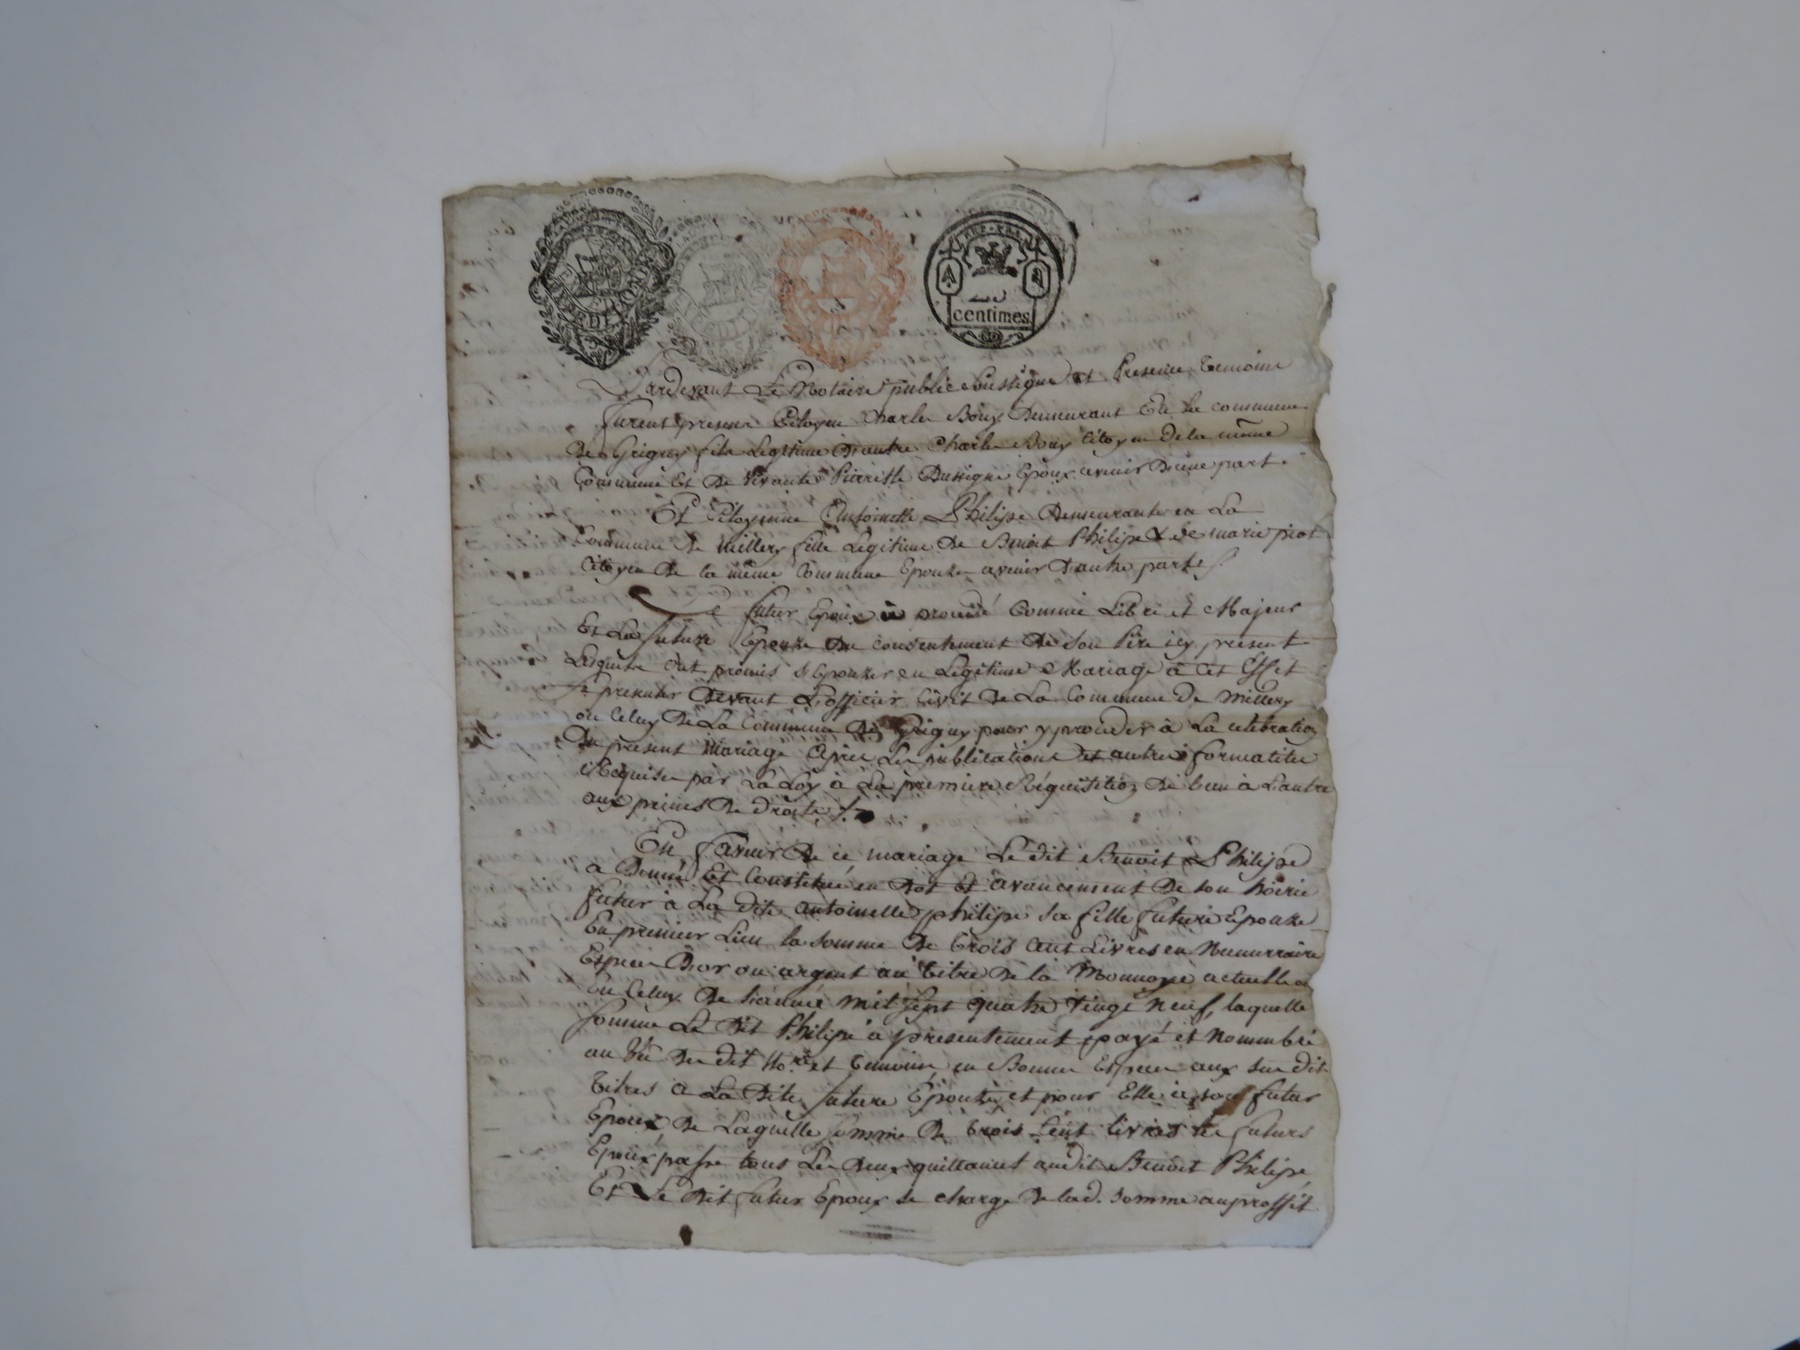 REP. FRA.
centimes
Pardevant Le Notaire public soussigné et Presence Temoins
furent presens Citoyen Charle Bouy Demeurant En la commune
de Grigny fils Legitime D'autre Charle Bouy Citoyen de la même
Commune Et De vivante Pierrette Epoux avenir D'une part
Et Citoyenne Antoinette Philipe Demeurante en La
Commune De Millery fille Legitime De Benoit Philipe & de marie piot
Citoyen De la même Commune Epouze avenir D'autre part
Le futur Epoux a procedé Comme Libre et Majeur
Et La future Epouze Du consentement De son Pere icy présent
Lesquels ont promis s'Epouzer en Legitime Mariage à Cet Effet
se presenter Devant L'officier Civil De La Commune De Millery
ou Celuy De La Commune De Grigny pour y proceder à La celebration
Du present Mariage Après Les publications et autres formalités
Requises par La Loy à La premiere Réquisition De L'un à L'autre
aux peines De Droits
En faveur De ce mariage Le dit Benoit Philipe
a Donné Et Constitué en Dot et avancement De son hoirie
futur à La dite antoinette philipe sa fille future Epouze
En premier Lieu la somme De trois cent Livres en Numerraire
Especes D'or ou argent au titre De la Monnoye actuelle
ou Celuy De L'année mil sept quatre vingt neuf, laquelle
somme Le Dit Philipe a présentement payé et Nommbré
au Vû Du dit No.re et temoins en Bonnes Especes aux sus dit
titres a La Dite future Epouze et pour Elle à son futur
Epoux De Laquelle somme De trois Cent livres les futurs
Epoux passe tous Les Deux quittances audit Benoit Philipe
Et Le Dit futur Epoux se charge De lad. somme au proffit